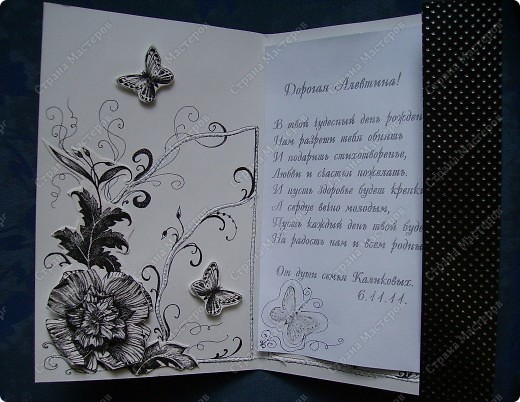 Дорогая Алевтина!
В твой чудесный день рожден
Нам разреши тебя обнять
И подарить стихотворенье,
Любви и счастья пожелать.
И пусть здоровье будет крепки
А сердце вечно молодым,
Пусть каждый день твой буде
На радость нам и всем родны
От души семья Каликовых.
6.11.11.
Страна Мастеров